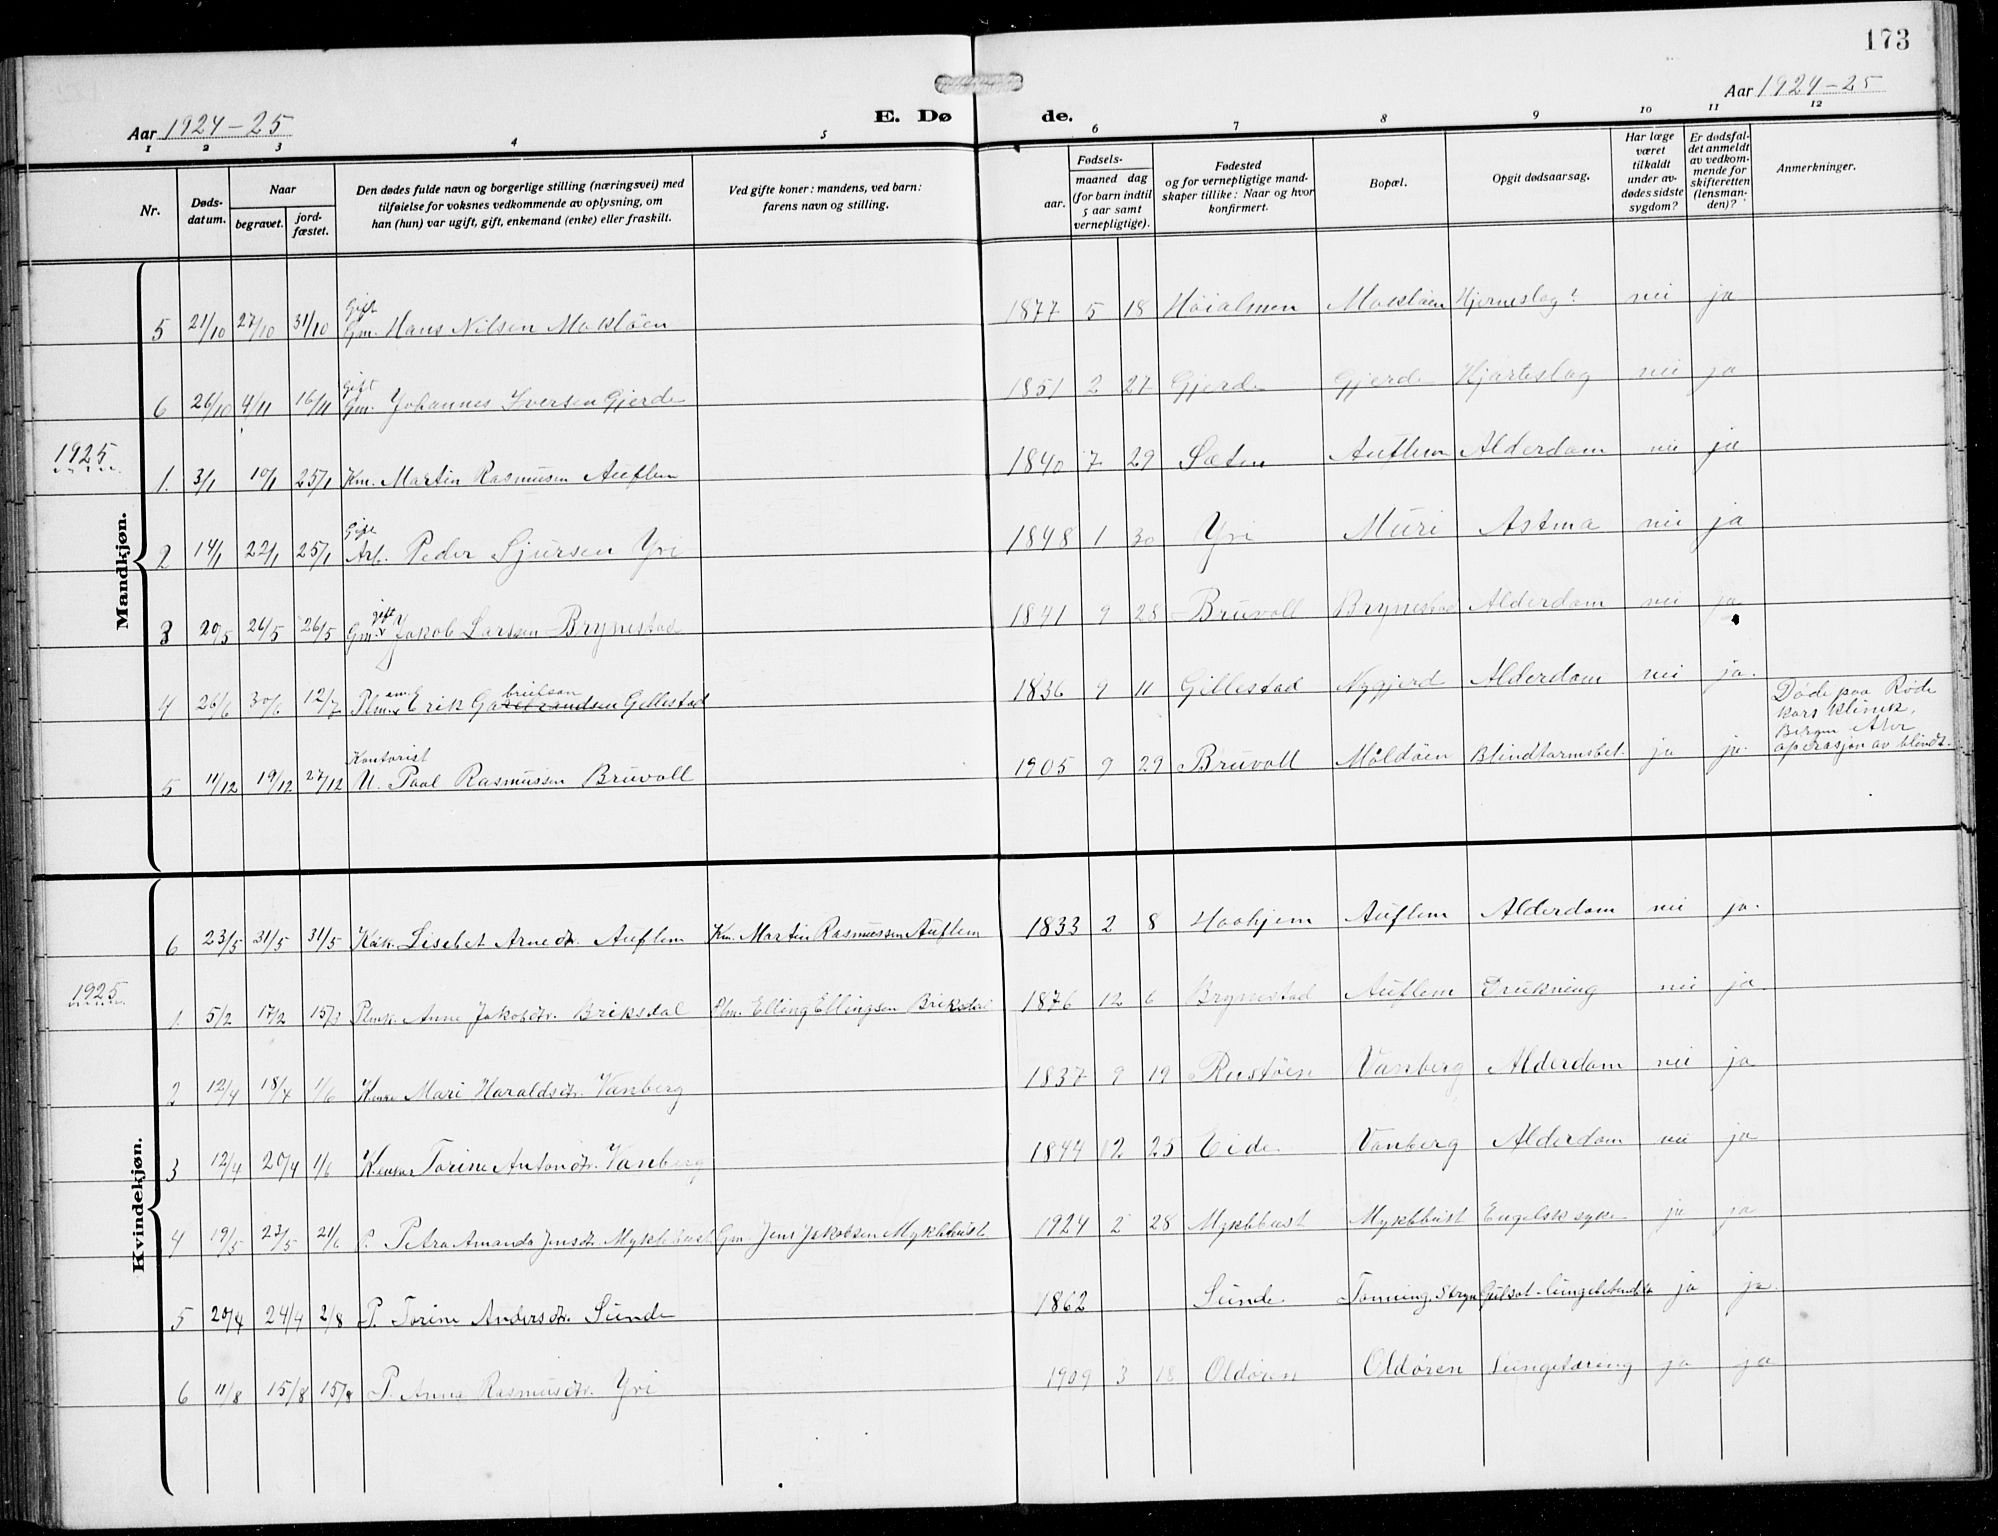 173
Aar 1924-25
E. Dø de.
Aar 1924-25
1 2 3 4 5 6 7 8 9 10 11 12
Nr.
Døds-datum.
Naar
begravet.
jord-fæstet.
Den dødes fulde navn og borgerlige stilling (næringsvei) med
tilføielse for voksnes vedkommende av oplysning, om
han (hun) var ugift, gift, enkemand (enke) eller fraskilt.
Ved gifte koner: mandens, ved barn:
farens navn og stilling.
Fødsels-
aar.
maaned dag
(for barn indtil
5 aar samt
vernepligtige).
Fødested
og for vernepligtige mand-
skaper tillike: Naar og hvor
konfirmert.
Bopæl.
Opgit dødsaarsag.
Har læge
været
tilkaldt
under av-
dødes sidste
sygdom?
Er dødsfal-
det anmeldt
av vedkom-
mende for
skifteretten
(lensman-
den)?
Anmerkninger.
Mandkjøn.
5 21/10 27/10 31/10 Gift Gm. Hans Nilsen Mokløen 1877 5 18 Høialmen Moekløen Hjerneslag? nei ja
6 26/10 4/11 16/11 gift Gm. Johannes Iversen Gjerde 1851 2 27 Gjerde Gjerde Hjarteslag nei ja
1925
1. 3/1 10/1 25/1 Km. Martin Rasmusen Auflem 1840 7 29 Sæten Auflem Alderdom nei ja
2 14/1 22/1 25/1 Gift Arb. Peder Sjursen Yri 1848 1 30 Yri Muri Astma nei ja
3 20/5 26/5 26/5 Gm. gift Jakob Larsen Brynestad 1841 9 28 Bruvoll Brynestad Alderdom nei ja
4 26/6 30/6 12/7 Plm. Erik Gabrielson Gillestad 1836 9 11 Gillestad Nygjerd Alderdom nei ja.
5 11/12 19/12 27/12 Kontorist U. Paal Rasmussen Bruvoll 1905 9 29 Bruvoll Måløen Blindtarmsbet. ja ja
Døde paa Røde
kors klinik,
Bergen
operasjon av blindt.
Kvindekjøn.
6 23/5 31/5 31/5 Kåk. Lisebet Arnedtr. Auflem Km. Martin Rasmussen Auflem 1833 2 8 Haahjem Auflem Alderdom nei ja.
1925
1. 5/2 17/2 15/3 Plmk. Anne Jakobdtr. Briksdal Plm. Elling Ellingsen Briksdal 1876 12 6 Brynestad Auflem Drukning nei ja.
2 12/4 18/4 1/6 Kenke Mari Haraldsdtr. Vanberg 1837 9 19 Rustøen Vanberg Alderdom nei ja
3 12/4 20/4 1/6 Torine Antondtr. Vanberg 1844 12 25 Eide Vanberg Alderdom nei ja
4 19/5 23/5 21/6 P. Petra Amanda Jensdtr. Myklebust Gm. Jens Jakobsen Myklebust 1924 2 28 Myklebust Myklebust Engelsk syke ja ja
5 20/4 24/4 2/8 P. Torine Andersdtr. Sunde 1862 Sunde Tonning, Stryn Gulsot - lungebetendelse ja ja.
6 11/8 15/8 15/8 P. Anna Rasmusdtr. Yri 1909 3 18 Oldøren Oldøren Lungetæring ja ja